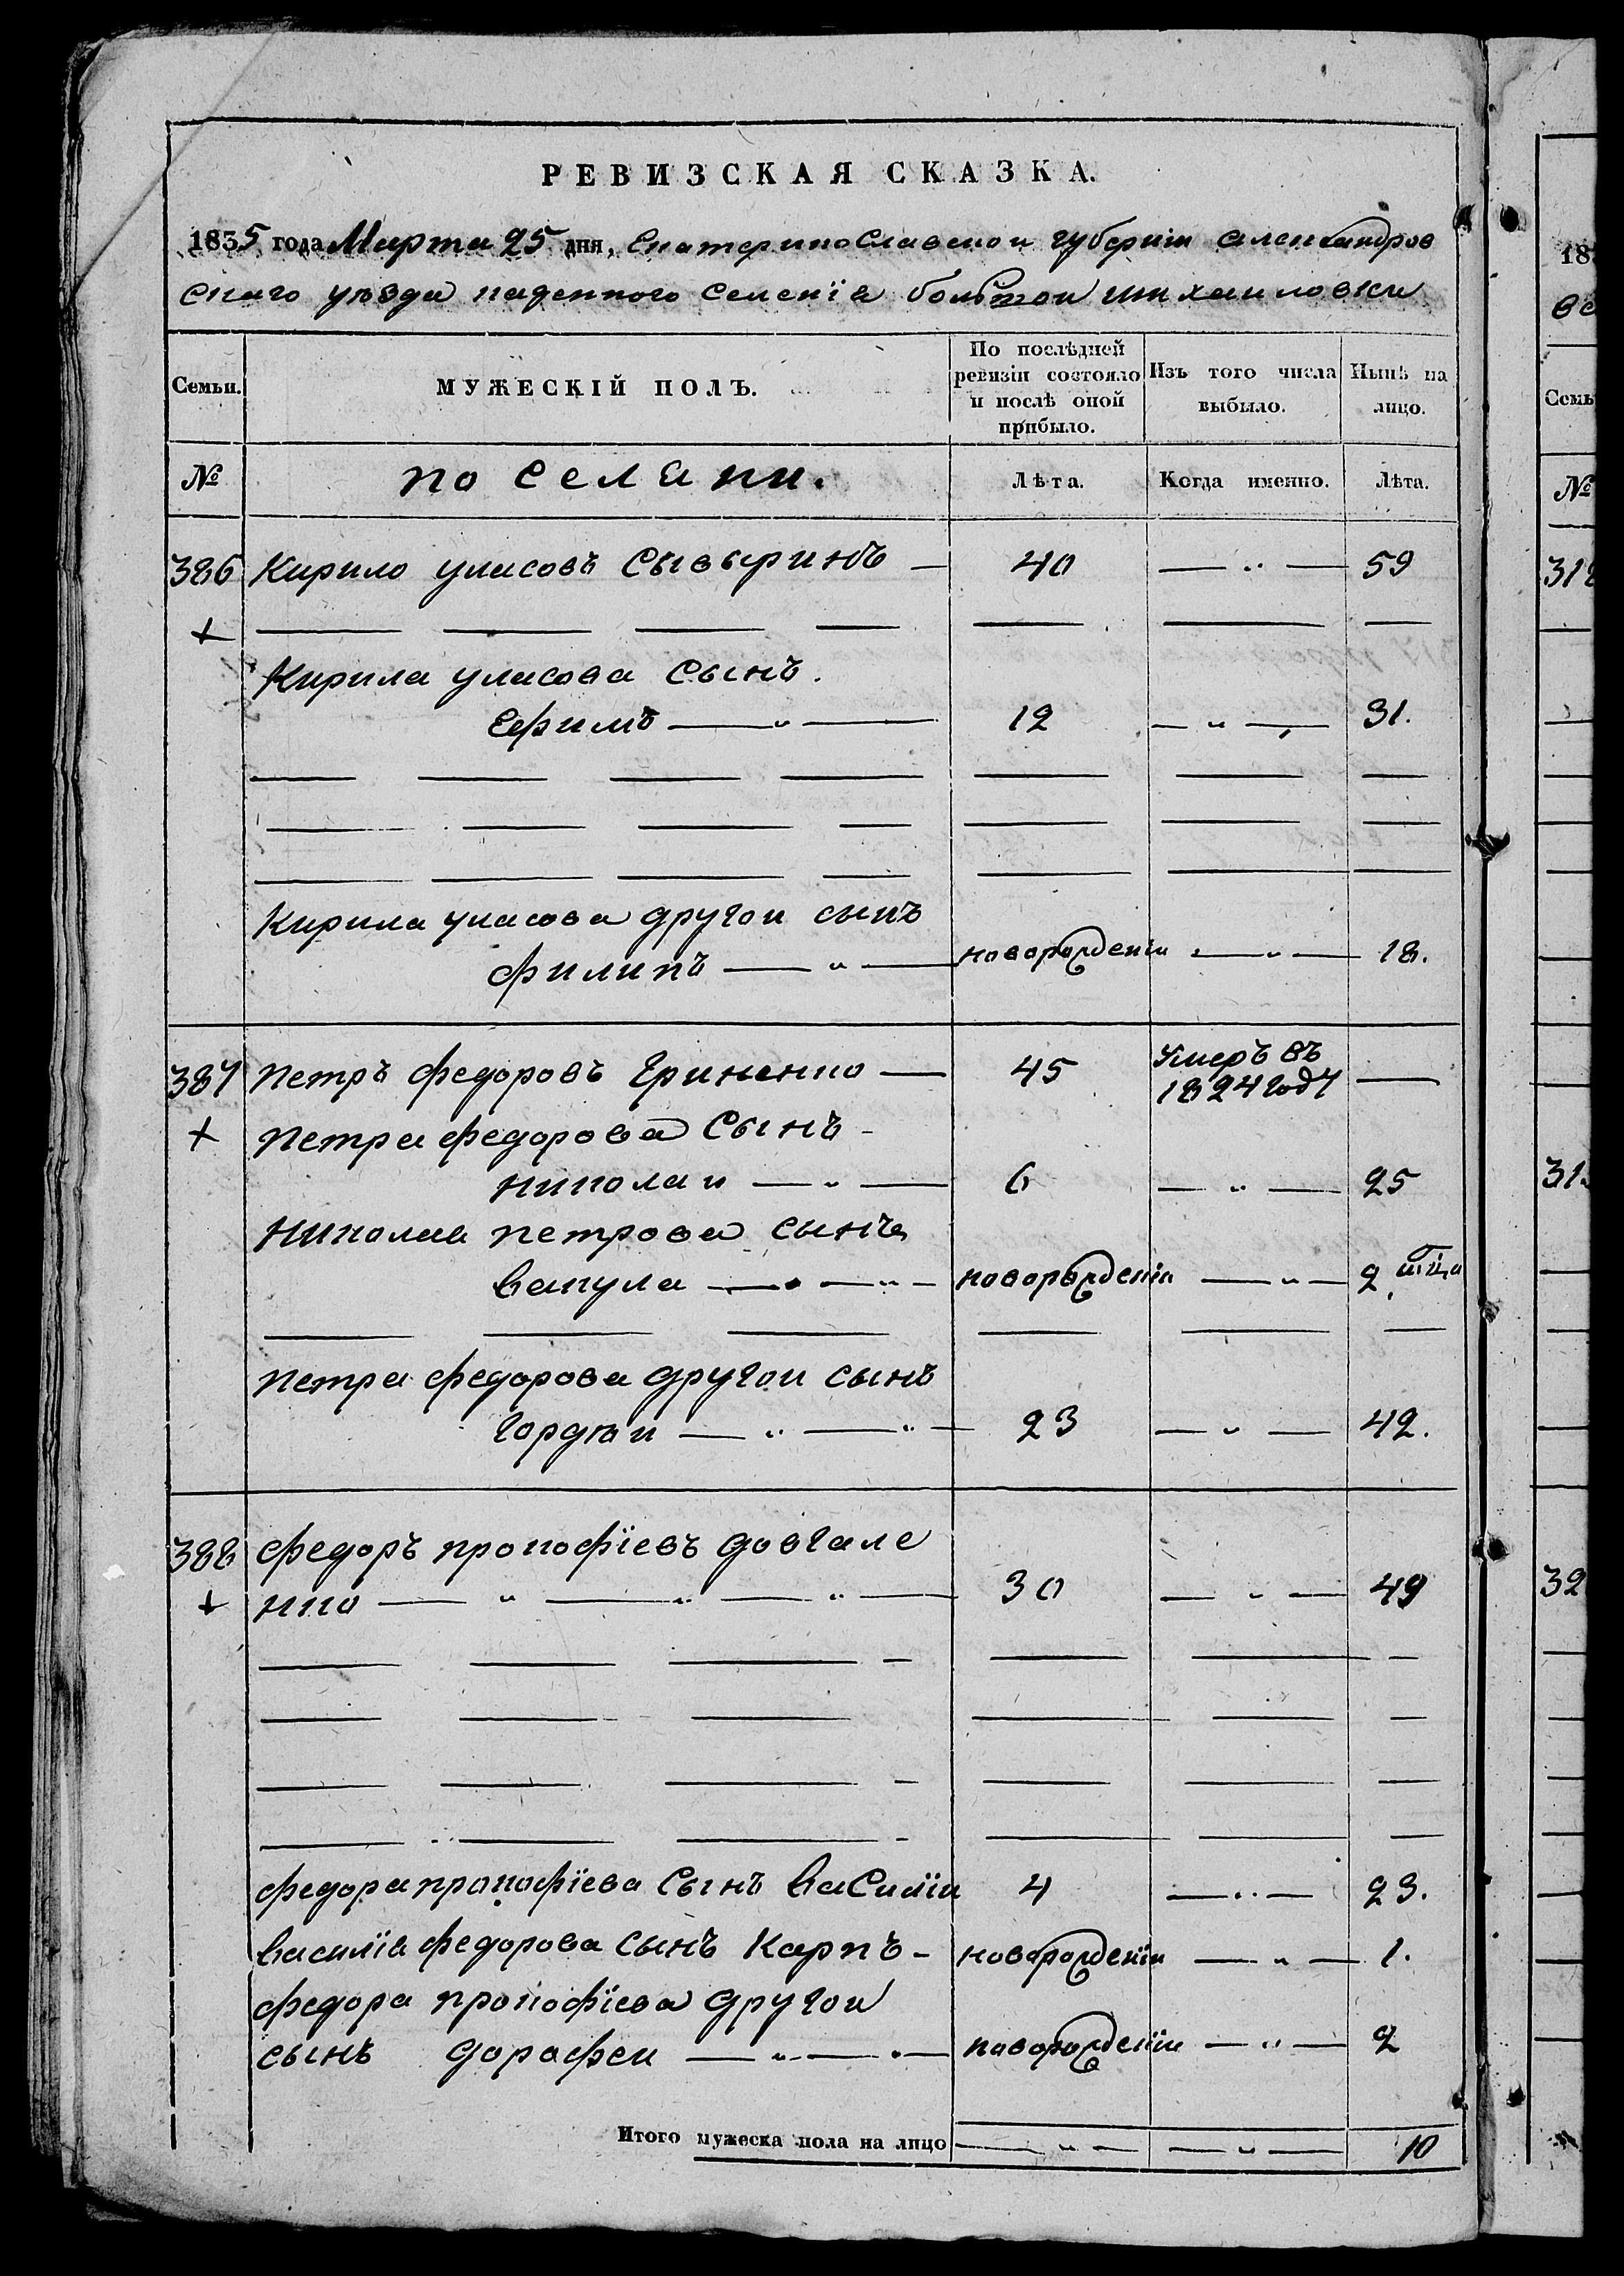 РЕВИЗСКАЯ СКАЗКА.
1835 года Марта 25 дня, Екатеринославской губерніи александров
скаго уѣзда казенного селенія большои михаиловки
Семьи. МУЖЕСКІЙ ПОЛЪ. По послѣдней ревизіи состояло и послѣ оной прибыло. Изъ того числа выбыло. Нынѣ на лицо.
№ поселяни. Лѣта. Когда именно. Лѣта.
386 Кирило уласовъ Сывыринъ 40 59
Кирила уласова Сынъ.
Ефимъ 12 31.
Кирила уласова другои сынъ
филипъ новорожденіи 18.
387 петръ федоровъ 45 Умеръ въ 1824 году
петра федорова Сынъ
николаи 6 25
николая петрова сынъ
вакула новорожденіи 2 м̃ца
петра федорова другои сынъ
гордѣи 23 42.
388 федоръ прокофіевъ довгале
нко 30 49
федора прокофіева Сынъ василіи 4 23.
василія федорова сынъ Карпъ новорожденіи 1.
федора прокофіева другои
сынъ дорофеи новорожденіи 2
Итого мужеска пола на лицо 10
18
318
32